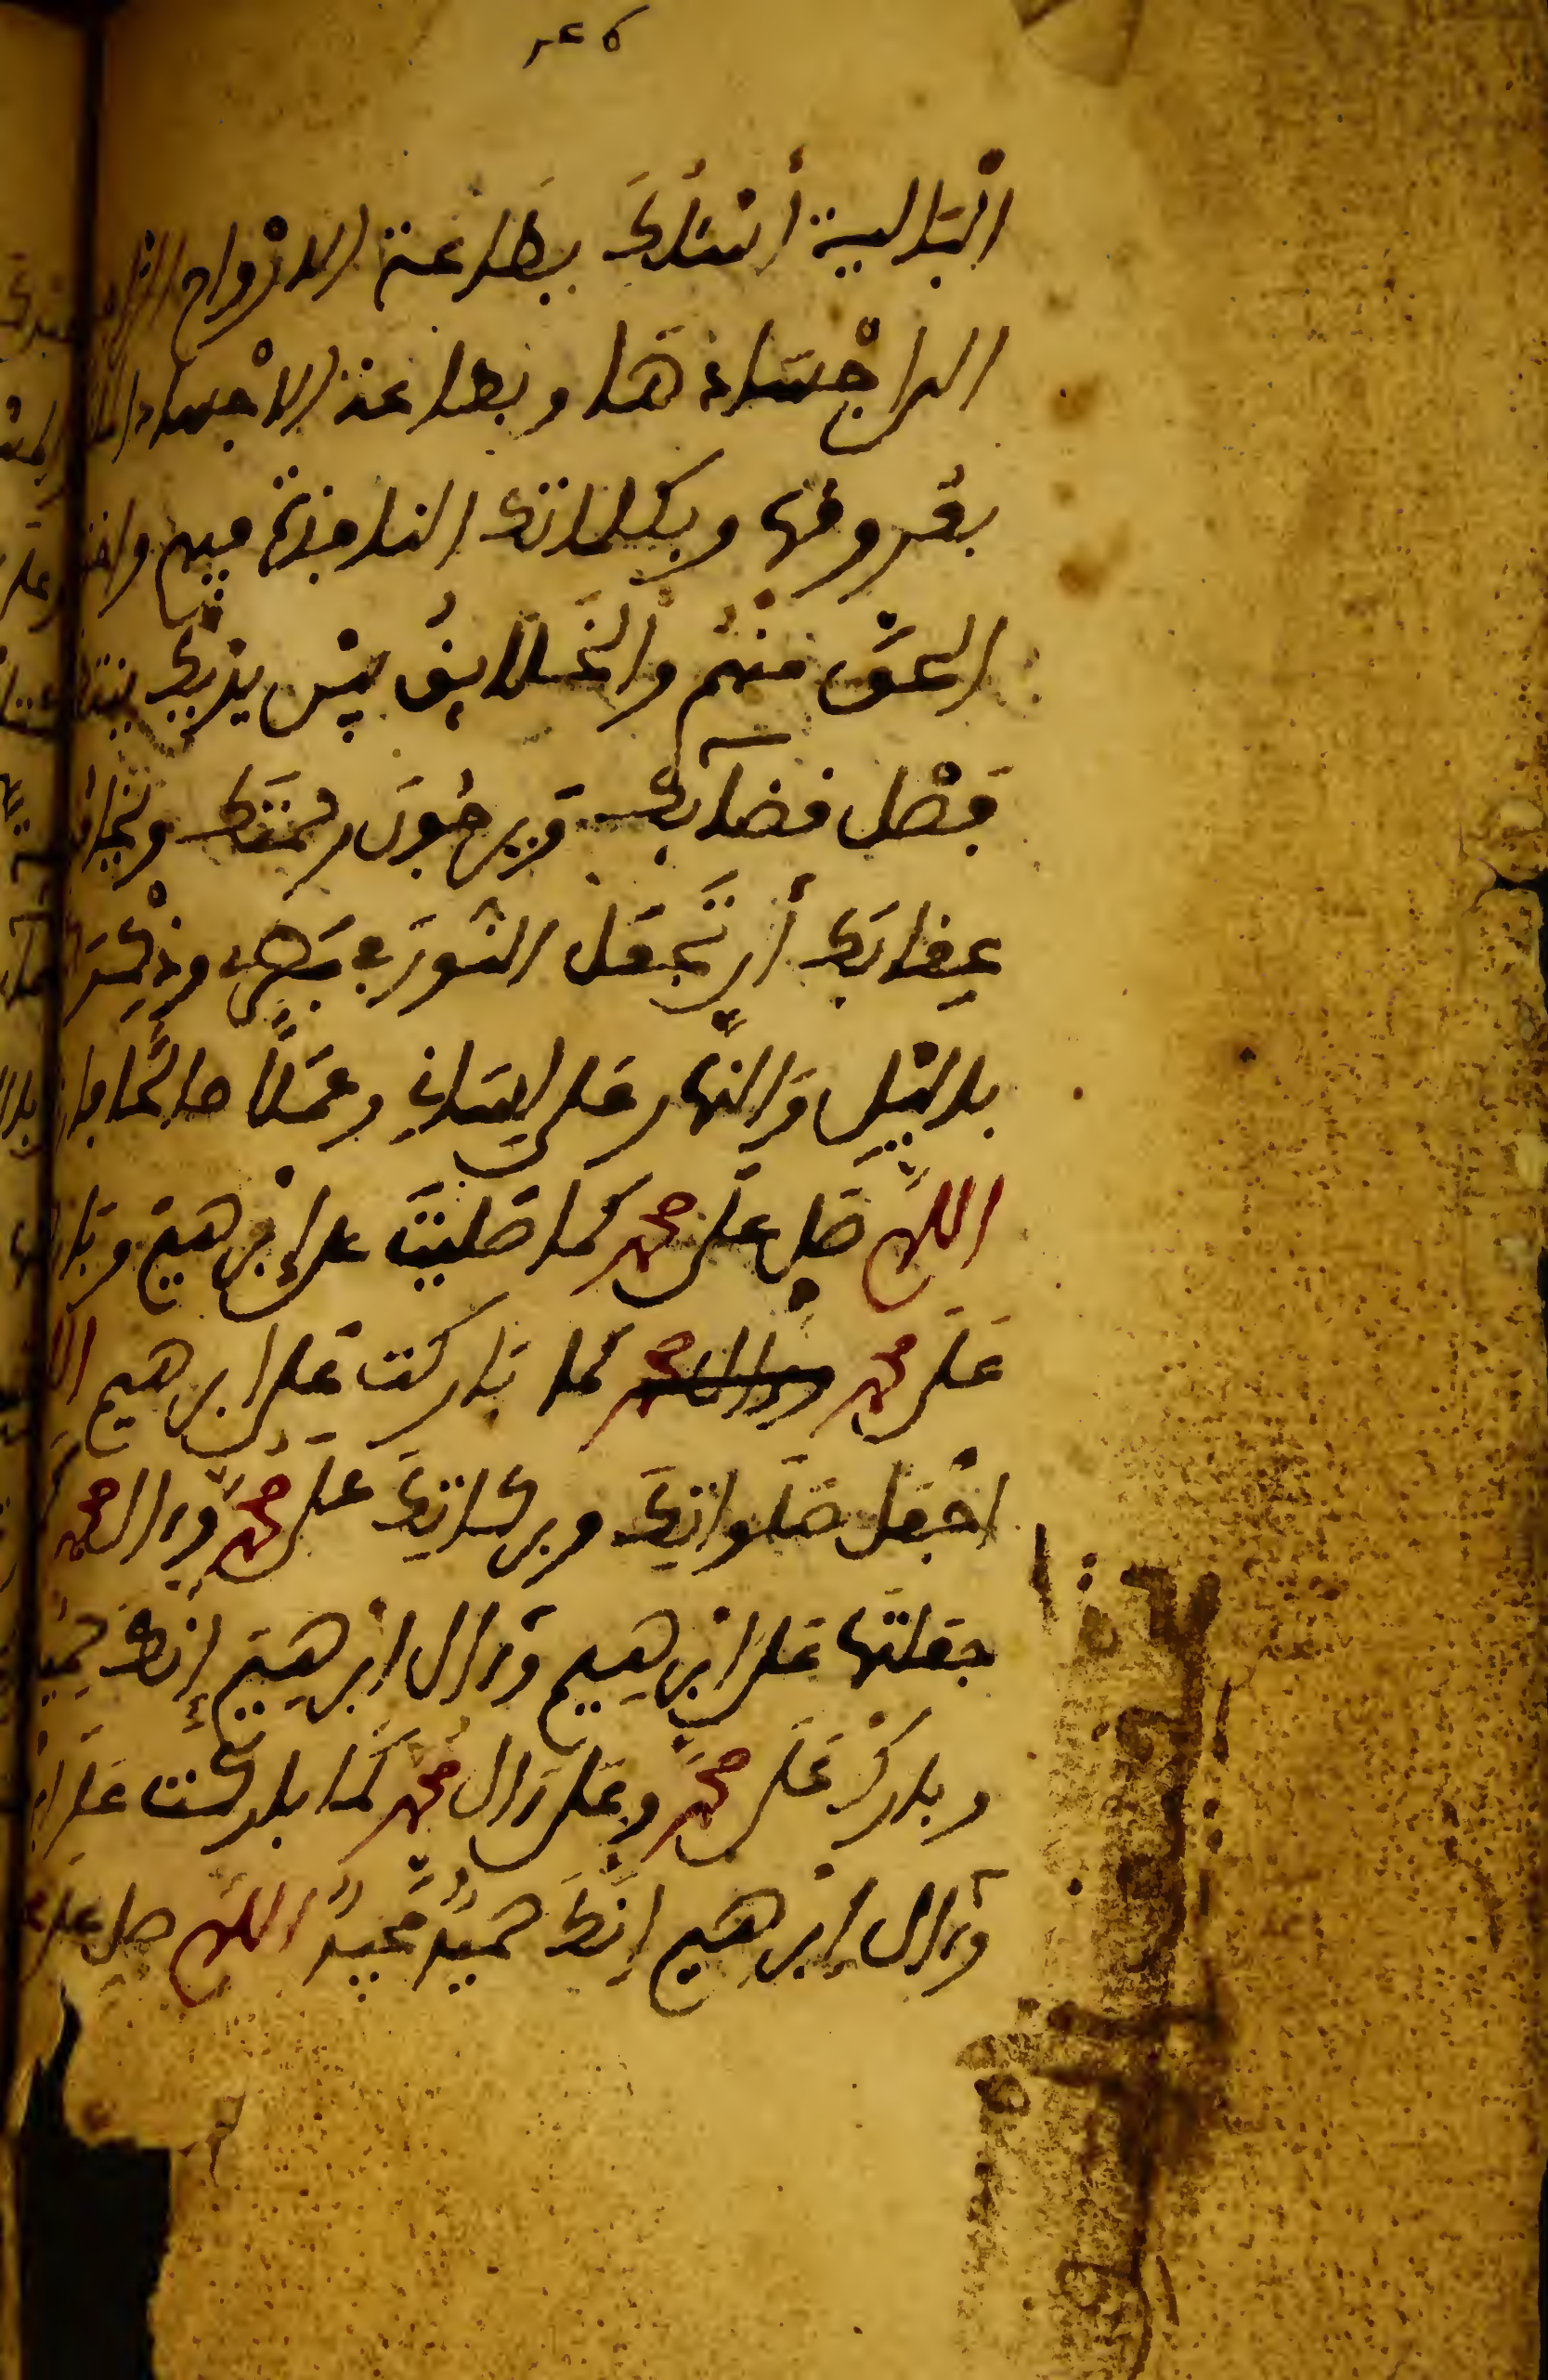 البالية أسئلك بطاعة الارواح
الى اجسادها وبطاعة الاجساد
بعروقها وبكلماتك النافذة فيهم واخذ
الحق منهم والخلايق بين يديك
فصل قضايك ويرجون رحمتك ويخافون
عقابك أن تجعل النور في بصري وذكرك
بالليل والنهار على لساني وعملا صالحا
اللهم صل على محمد كما صليت على إبرهيم وبارك
على محمد كما باركت على ابرهيم
اجعل صلواتك وبركاتك على محمد وءال محمد
جعلتها على ابرهيم وءال ابرهيم إنك حميد
وبارك على محمد وعلى ءال محمد كما باركت على
وءال إبرهيم انك حميد مجيد اللهم صل على